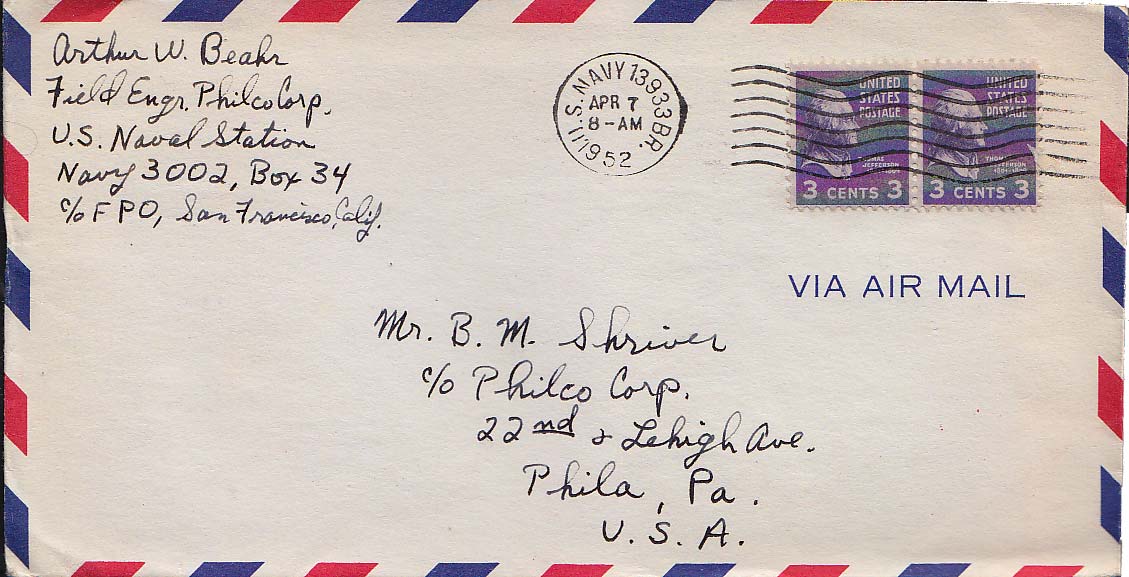 Arthur W. Beahr
Field Engr. Philco Corp.
U.S. Naval Station
Navy 3002, Box 34
c/o F P O, San Francisco, Calif.
U.S. NAVY 13933 BR.
APR 7
8-AM
1952
UNITED STATES POSTAGE
THOMAS JEFFERSON
3 CENTS 3
UNITED STATES POSTAGE
THOMAS JEFFERSON
3 CENTS 3
VIA AIR MAIL
Mr. B. M. Shriver
c/o Philco Corp.
22nd & Lehigh Ave.
Phila, Pa.
U. S. A.